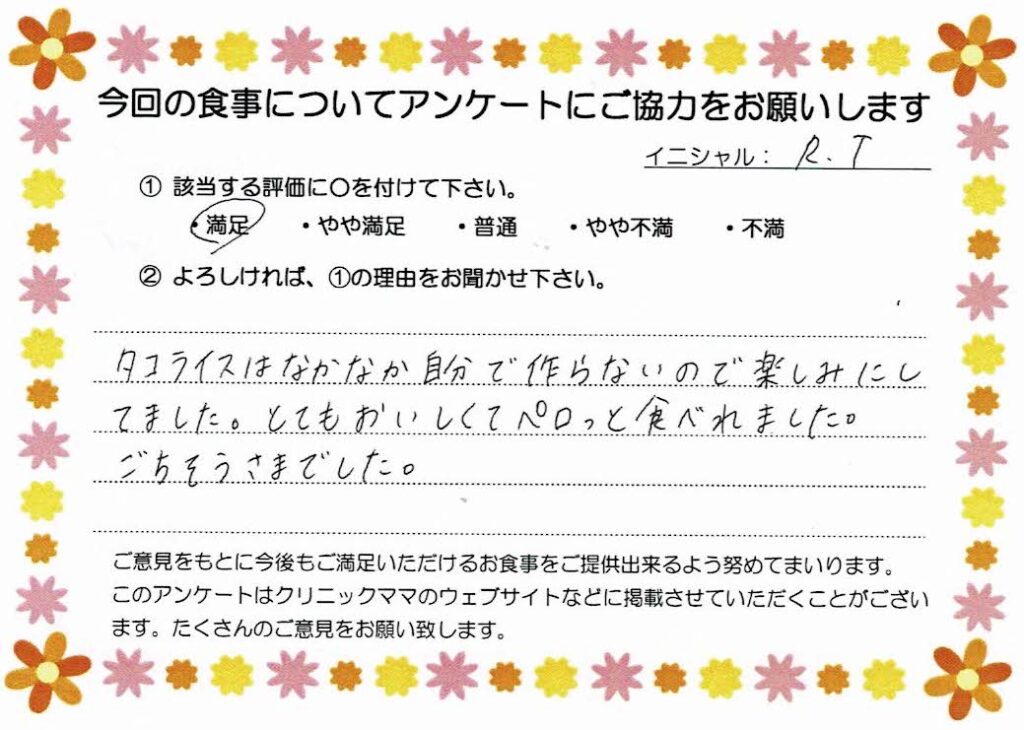 今回の食事についてアンケートにご協力をお願いします
イニシャル： R.T
① 該当する評価に〇を付けて下さい。
・満足 ・やや満足 ・普通 ・やや不満 ・不満
② よろしければ、①の理由をお聞かせ下さい。
タコライスはなかなか自分で作らないので楽しみにし
てました。とてもおいしくてペロっと食べれました。
ごちそうさまでした。
ご意見をもとに今後もご満足いただけるお食事をご提供出来るよう努めてまいります。
このアンケートはクリニックママのウェブサイトなどに掲載させていただくことがござい
ます。たくさんのご意見をお願い致します。